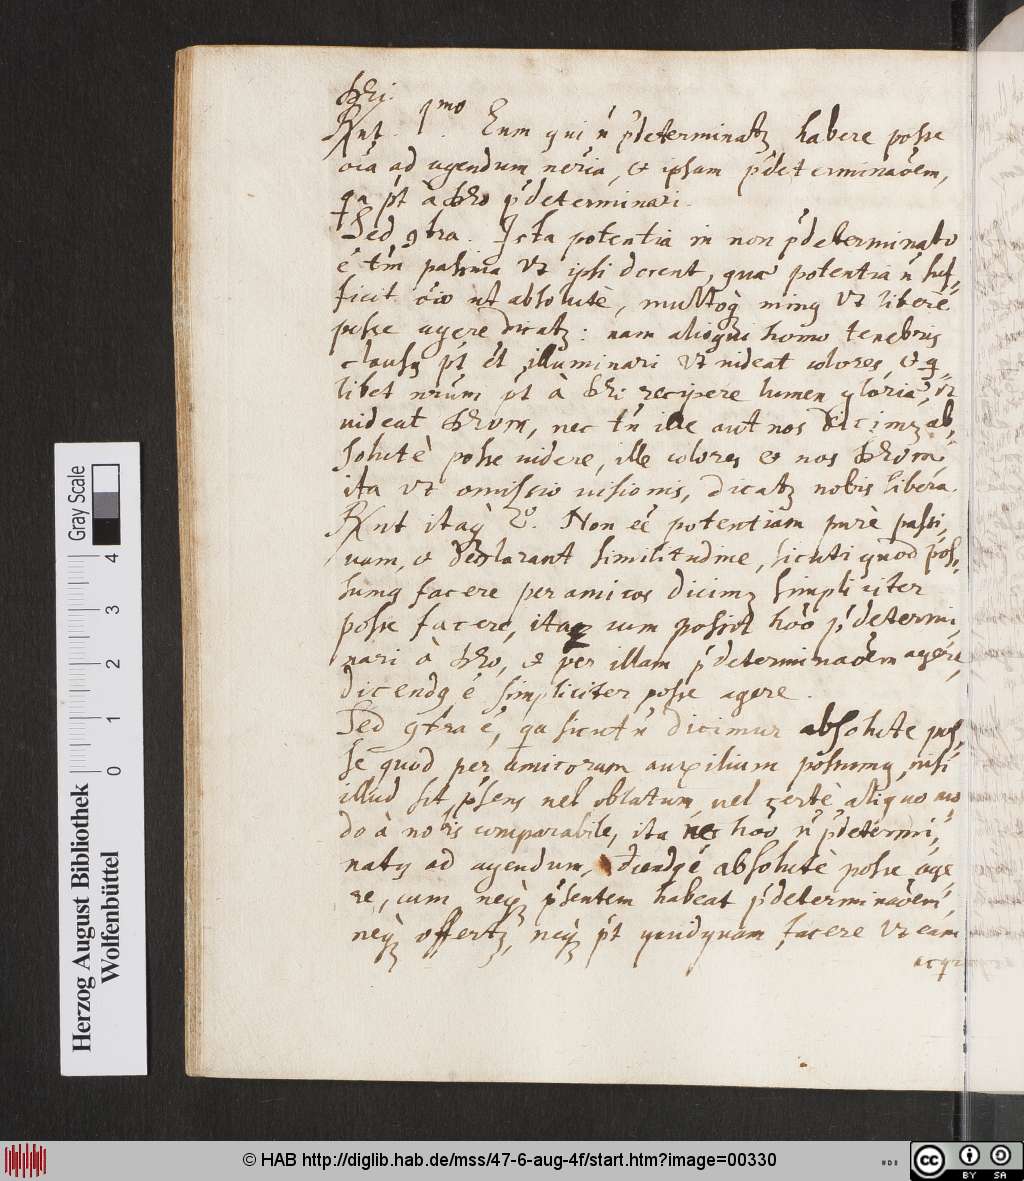 ðri.
Rnt. 1mo. Eum qui ñ p̃determinatꝫ habere posse
oı̃a ad agendum neɾı̃a, & ipsam p̃determinaõem,
qa põt à ðeo p̃determinari.
Sed ꝯtra. Ista potentia in non p̃determinato
ẽ tm̃ passiua vt ipsi docent, quae potentia ñ suf-
ficit õio ut absolutè, multoq̃ minꝰ vt liberè
posse agere dicatꝫ: nam alioqui homo tenebris
clausꝰ põt illuminari vt uideat colores, & q-
libet nrũm põt à recipere lumen gloriae, vt
uideat, nec tñ ille aut nos dicimꝰ ab-
solutè posse uidere, ille colores & nos
ita vt omissio uisionis, dicatꝫ nobis libera.
Rnt itaq̃ 2o. Non eẽ potentiam purè passi-
uam, & declarant similitudine, sicuti quod pos-
sumꝰ facere per amicos dicimꝰ simpliciter
posse facere, itaq̃ cum possit hõo p̃determi-
nari à ðeo, & per illam p̃determinaõem agere,
dicendꝰ ẽ simpliciter posse agere.
Sed ꝯtra ẽ, qa sicut ñ dicimur absolute pos-
se quod per amicorum auxilium possumꝰ, nisi
illud sit p̃sens uel oblatum, uel certè aliquo mo
do à nobis comparabile, ita nec hõo ñ p̃determi-
natꝰ ad agendum, dicendꝰ ẽ absolutè posse age-
re, cum neq̃ p̃sentem habeat p̃determinaõem,
neq̃ offertꝫ, neq̃ põt quidquam facere vt eam
acqr
Herzog August Bibliothek
Wolfenbüttel
Gray Scale
0 1 2 3 4
© HAB http://diglib.hab.de/mss/47-6-aug-4f/start.htm?image=00330
cc BY SA